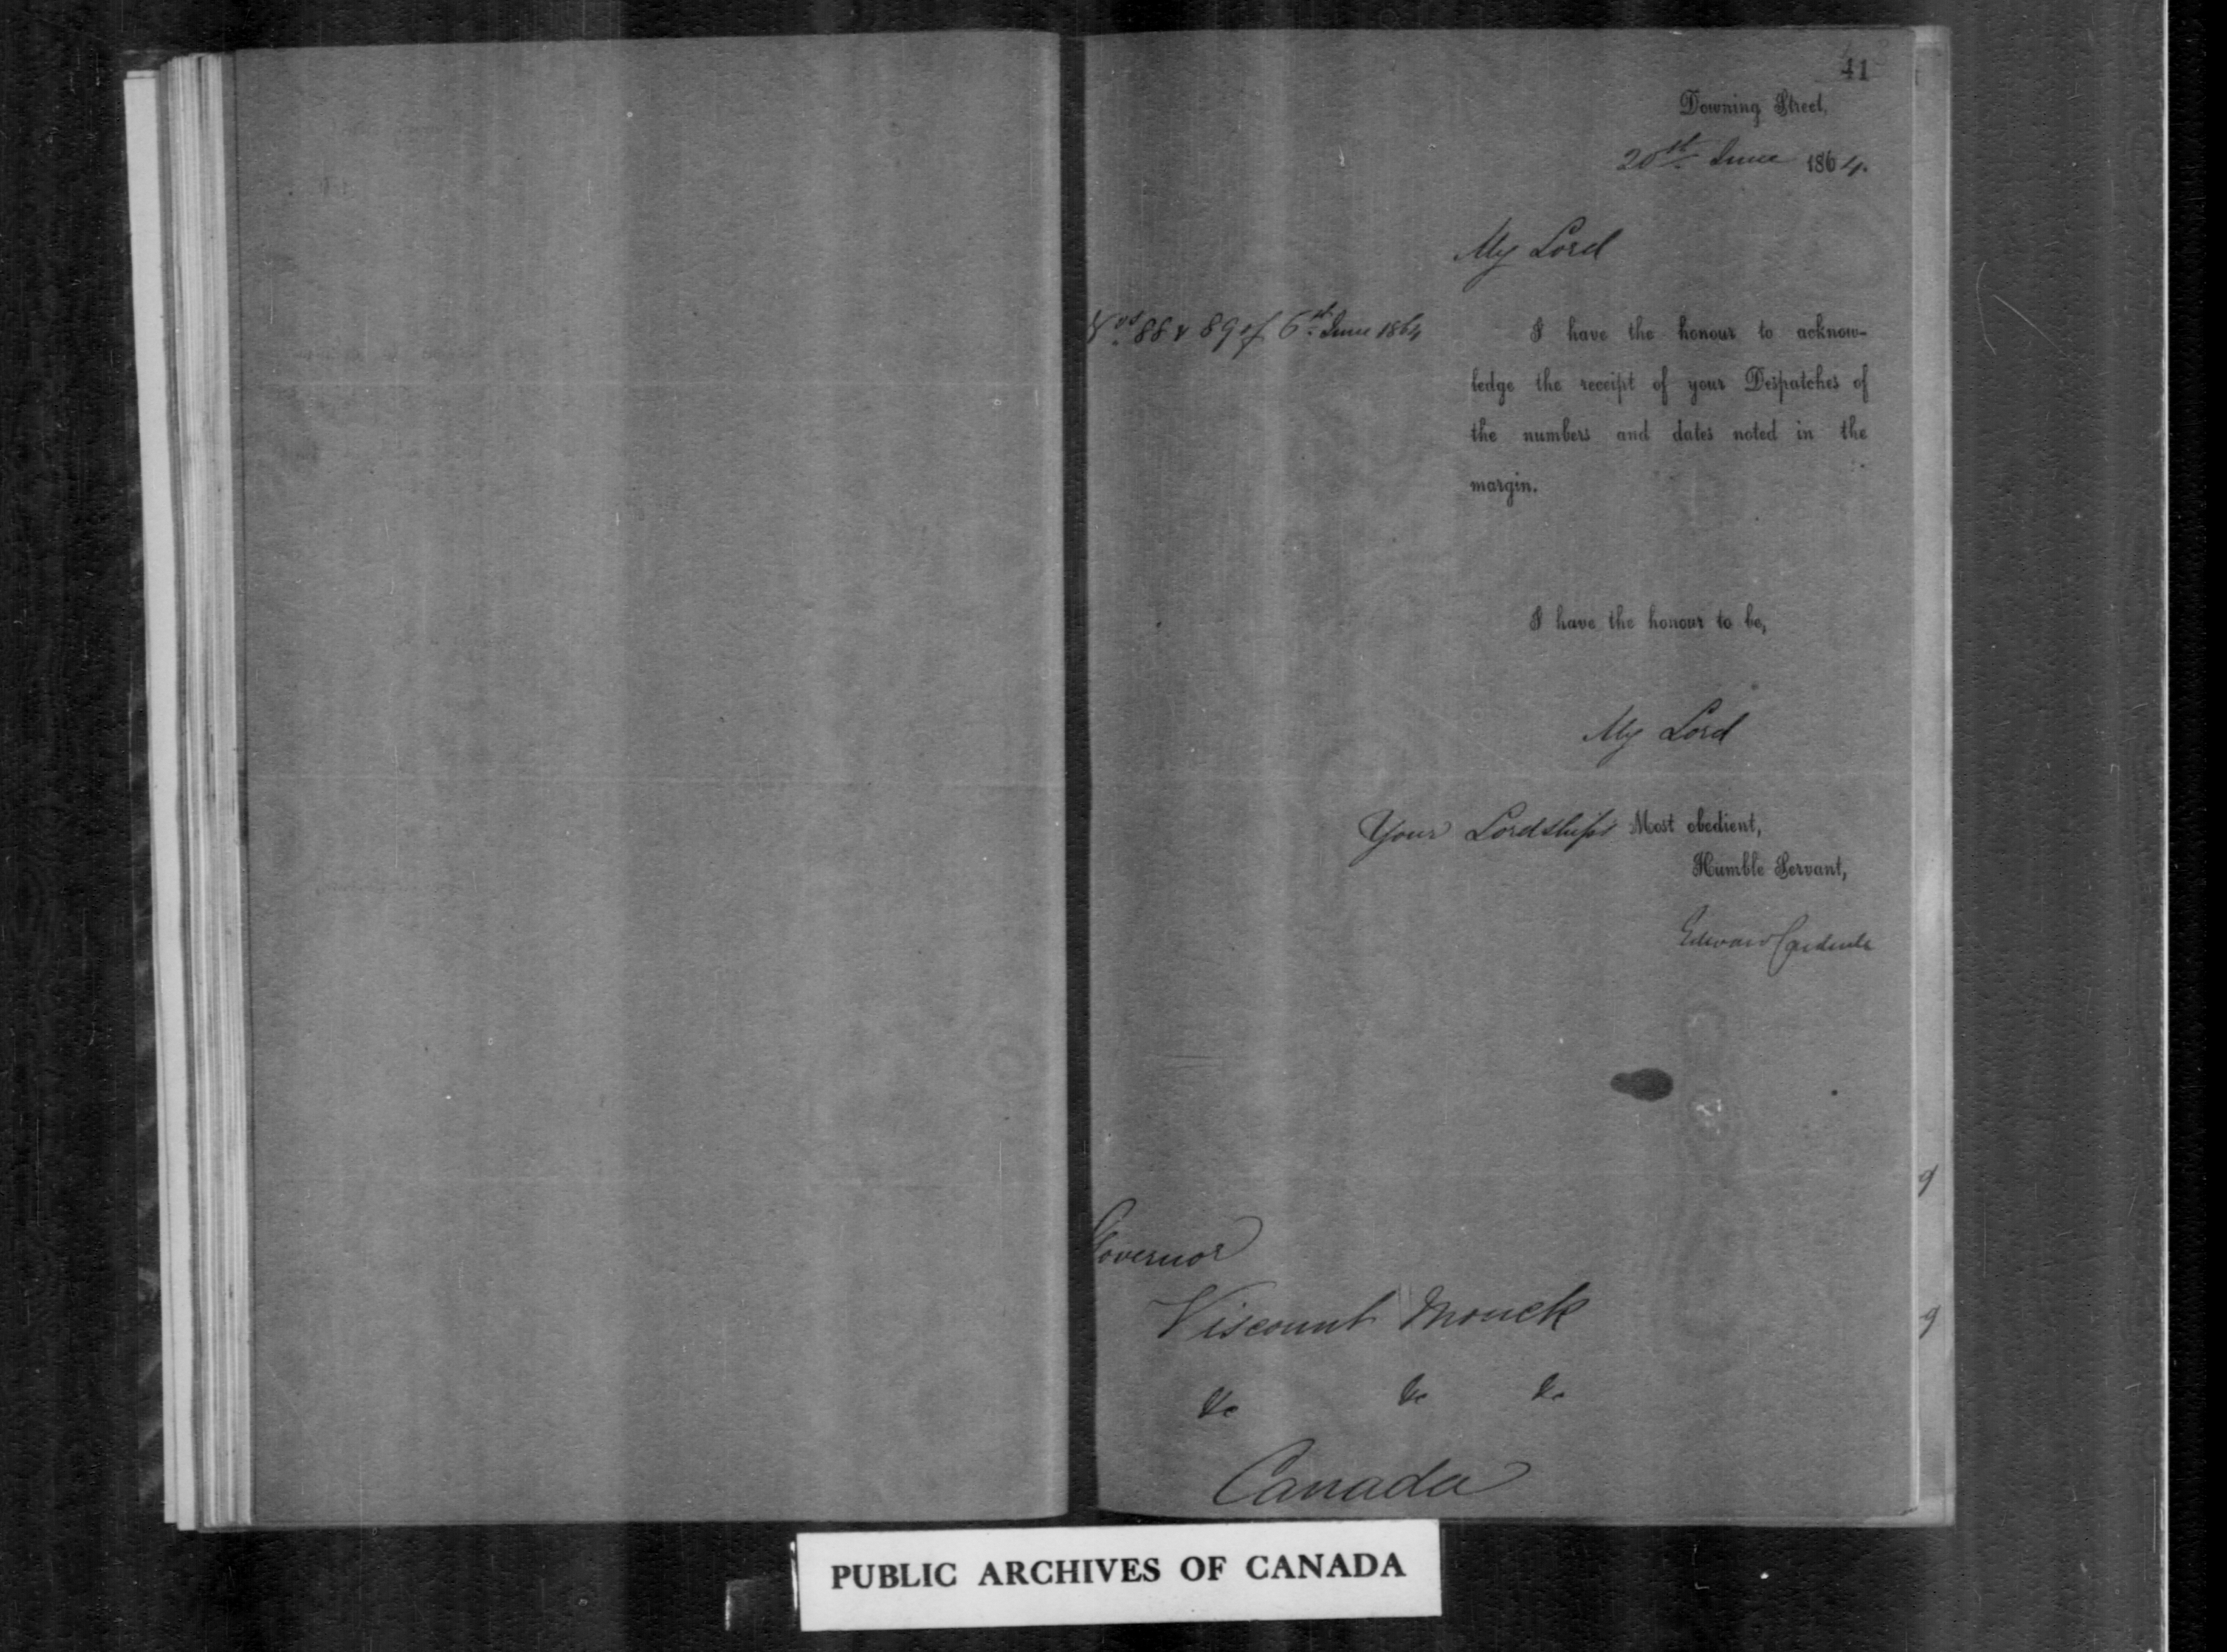 41
Downing Street,
20th June 1864.
My Lord
Nos 88 & 89 of 6th June 1864
I have the honour to acknow-
ledge the receipt of your Despatches of
the numbers and dates noted in the
margin.
I have the honour to be,
My Lord
Your Lordship's Most obedient,
Humble Servant,
Edward Cardwell
Governor
Viscount Monck
&c &c &c
Canada
PUBLIC ARCHIVES OF CANADA